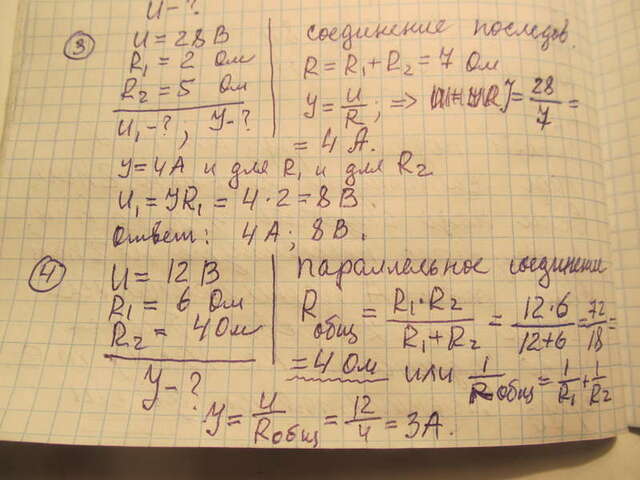 U - ?
③ U = 28 В
R₁ = 2 Ом
R₂ = 5 Ом
U₁ - ? ; У - ?
соединение последов.
R = R₁ + R₂ = 7 Ом
У = U/R ; => У = 28/7 =
= 4 А.
У = 4А и для R₁ и для R₂
U₁ = УR₁ = 4 · 2 = 8 В.
Ответ: 4 А ; 8 В.
④ U = 12 В
R₁ = 6 Ом
R₂ = 4 Ом
У - ?
параллельное соединение
R общ = R₁·R₂/R₁+R₂ = 12·6/12+6 = 72/18 =
= 4 Ом или 1/R общ = 1/R₁ + 1/R₂
У = U/R общ = 12/4 = 3А.